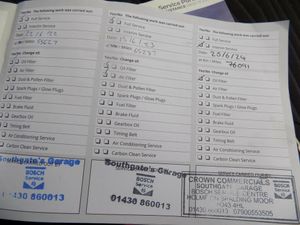 Yes/No The following work was carried out:
Full Service
Interim Service
Yes/No Change of:
Oil Filter
Air Filter
Dust & Pollen Filter
Spark Plugs / Glow Plugs
Fuel Filter
Brake Fluid
Gearbox Oil
Timing Belt
Air Conditioning Service
Carbon Clean Service
Southgate's Garage
BOSCH
Service
01430 860013
Yes/No The following work was carried out:
Full Service
Interim Service
Yes/No Change of:
Oil Filter
Air Filter
Dust & Pollen Filter
Spark Plugs / Glow Plugs
Fuel Filter
Brake Fluid
Gearbox Oil
Timing Belt
Air Conditioning Service
Carbon Clean Service
Southgate's Garage
BOSCH
Service
01430 860013
Yes/No The following work was carried out:
Full Service
Interim Service
25/6/24
76091
Yes/No Change of:
Oil Filter
Air Filter
Dust & Pollen Filter
Spark Plugs / Glow Plugs
Fuel Filter
Brake Fluid
Gearbox Oil
Timing Belt
Air Conditioning Service
Carbon Clean Service
CROWN COMMERCIALS
SOUTHGATE GARAGE
BOSCH SERVICE CENTRE
HOLME ON SPALDING MOOR
YO43 4HL
01430 860013 07900553505